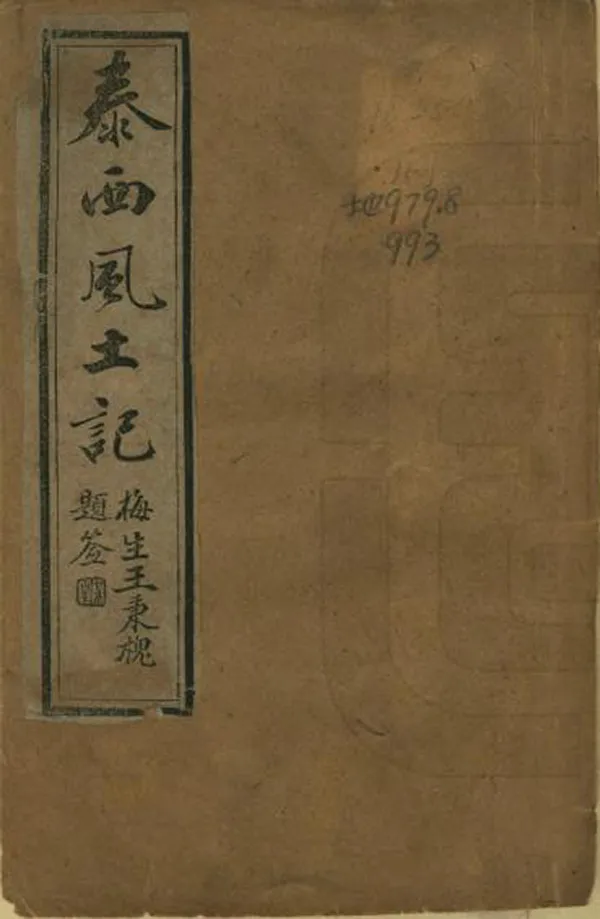 泰西風土記
梅生王秉槐
題签
地979.8
993